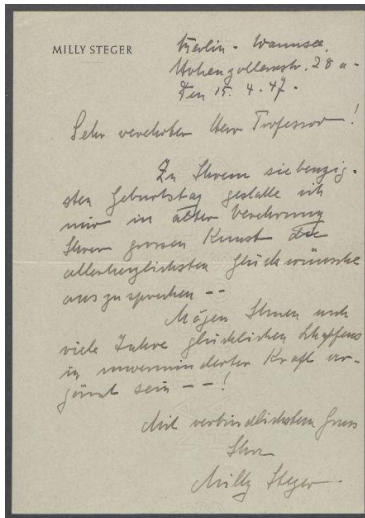 MILLY STEGER
Berlin - Wannsee,
Hohenzollernstr. 28 a -
Den 15. 4. 47. -
Sehr verehrter Herr Professor!
Zu Ihrem siebenzig-
sten Geburtstag gestatte ich
mir in alter Verehrung
Ihrer grossen Kunst die
allerherzlichsten Glückwünsche
auszusprechen --
Mögen Ihnen noch
viele Jahre glücklichen Schaffens
in unverminderter Kraft ver-
gönnt sein -- !
Mit verbindlichstem Gruss
Ihre
Milly Steger -